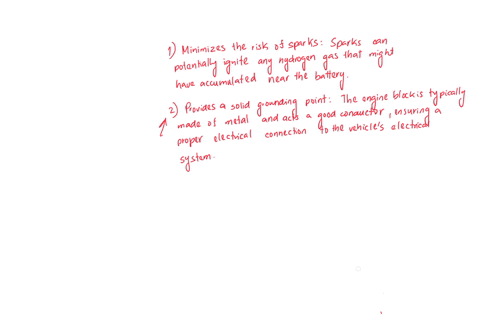 1) Minimizes the risk of sparks: Sparks can
potentially ignite any hydrogen gas that might
have accumulated near the battery.
2) Provides a solid grounding point: The engine block is typically
made of metal and acts a good conductor, ensuring a
proper electrical connection to the vehicle's electrical
system.